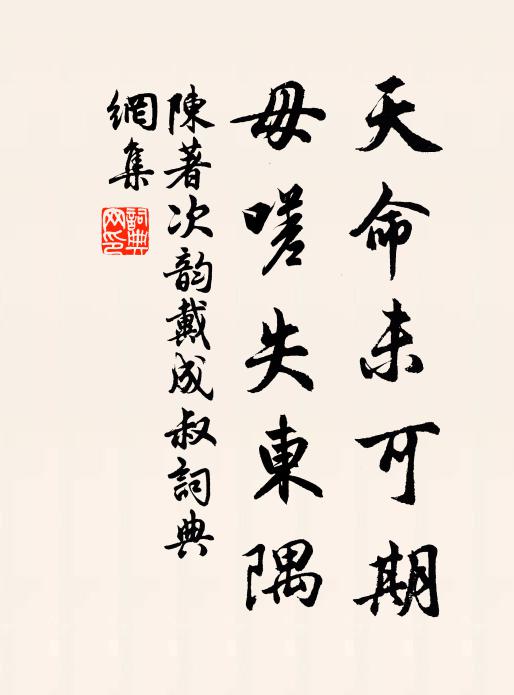 天命未可期
毋嗟失東隅
陳著次韵戴成叔詞典
網集
詞典网印